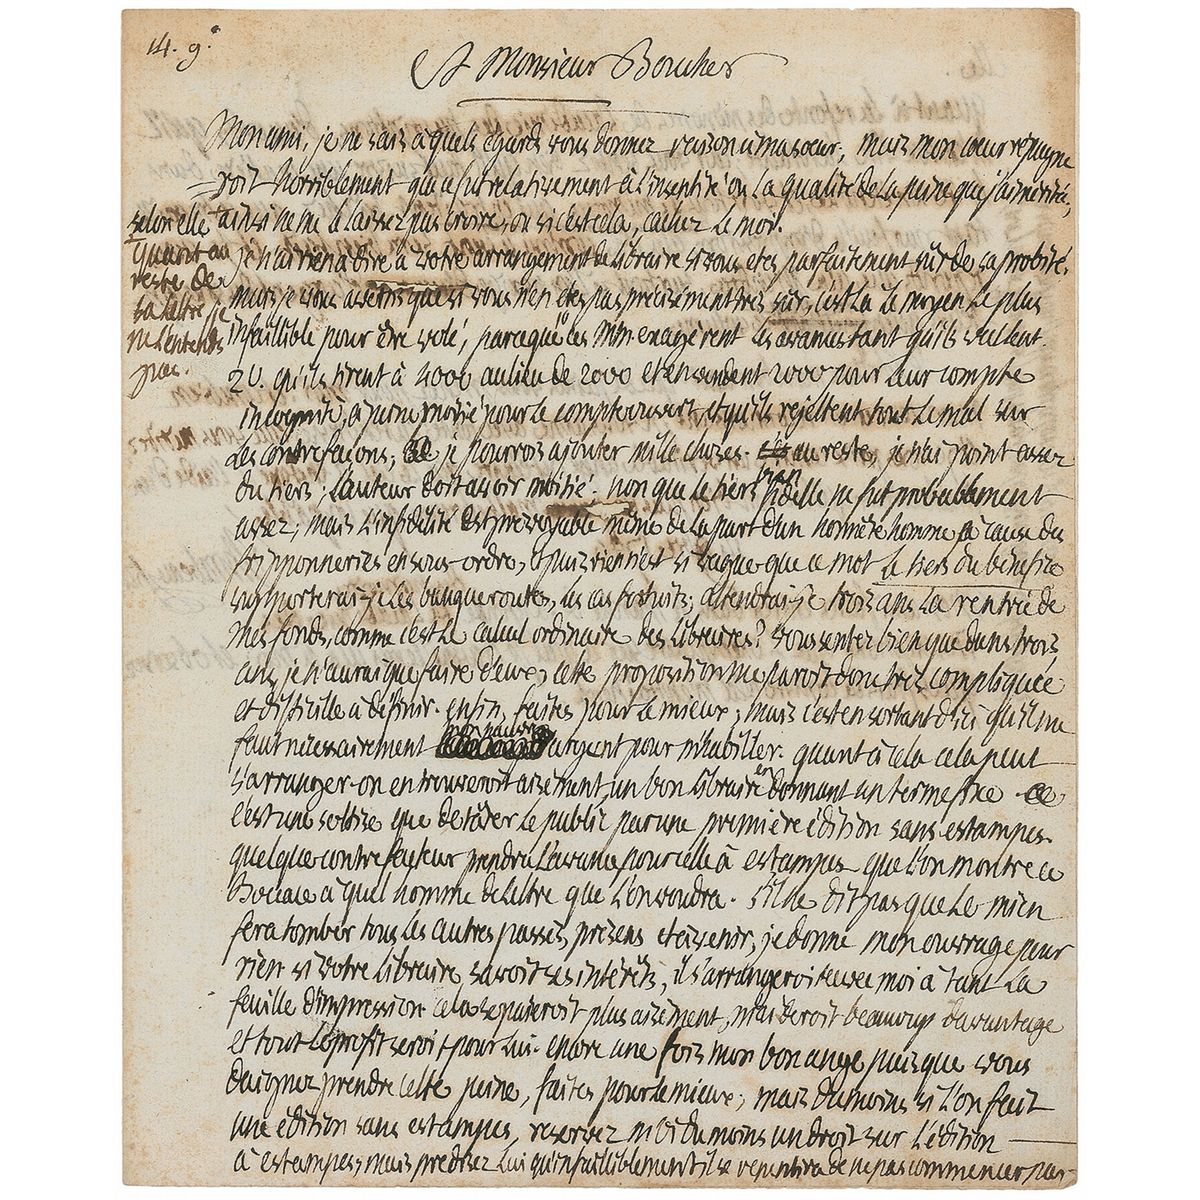 14. 9.
A Monsieur Boucher
Mon ami, je ne sais à quels égards vous donnez raison à ma sœur, mais mon cœur répugne
roit horriblement que ce fut relativement à l'inventité ou la qualité de la peine que j'ai mérité,
selon elle ainsi ne me le laissez pas croire, ou si c'est cela, cachez le moi.
quant au
reste de
sa lettre je
ne l'entends
pas.
je n'ai rien à dire à votre arrangement de libraire si vous etes parfaitement sûr de sa probité.
mais je vous avertis que si vous n'en etes pas précisément très sûr, c'est là le moyen le plus
infaillible pour être volé, parceque les exagérent les avances tant qu'ils veillent.
2°. qu'ils tirent à 4000 au lieu de 2000 et en vendent 2000 pour leur compte
incognitò, à peine moitié pour le compte ouvert, et qu'ils rejettent tout le mal sur
les contrefaçons, je pourrois ajouter mille choses. au reste, je n'ai point assez
du tiers; l'auteur doit avoir moitié. non que le tiers bien fidelle ne fut probablement
assez; mais l'infidélité est prevoyable même de la part d'un honnête homme à cause des
fripponneries en sous-ordre, et puis rien n'est si vague que ce mot le tiers du bénéfice
supporterai-je les banqueroutes, les cas fortuits; attendrai-je trois ans la rentrée de
mes fonds, comme c'est le calcul ordinaire des libraires? vous sentez bien que dans trois
ans je n'aurai que faire d'eux, cette proposition me paroit donc très compliquée
et difficille à définir. enfin, faites pour le mieux; mais c'est en sortant d'ici qu'il me
faut nécessairement mon pauvre argent pour m'habiller. quant à cela cela peut
s'arranger. on en trouveroit aisément, un bon libraire en donnant un terme fixe
c'est une sottise que de tâter le public par une première édition sans estampes.
quelque contrefacteur prendra l'avance pour celle à estampes que l'on montre ce
Boccace à quel homme de lettre que l'on voudra. s'il ne dit pas que le mien
fera tomber tous les autres passés, présens et avenir, je donne mon ouvrage pour
rien si votre libraire savoit ses intérêts, il s'arrangeroit avec moi à tant la
feuille d'impression cela se paieroit plus aisément, m'aideroit beaucoup davantage
et tout le profit seroit pour lui. encore une fois mon bon ange puisque vous
daignez prendre cette peine, faites pour le mieux; mais du moins si l'on fait
une édition sans estampes, reservez moi du moins un droit sur l'édition
à estampes; mais predisez lui qu'infailliblement il se repentira de ne pas commencer par